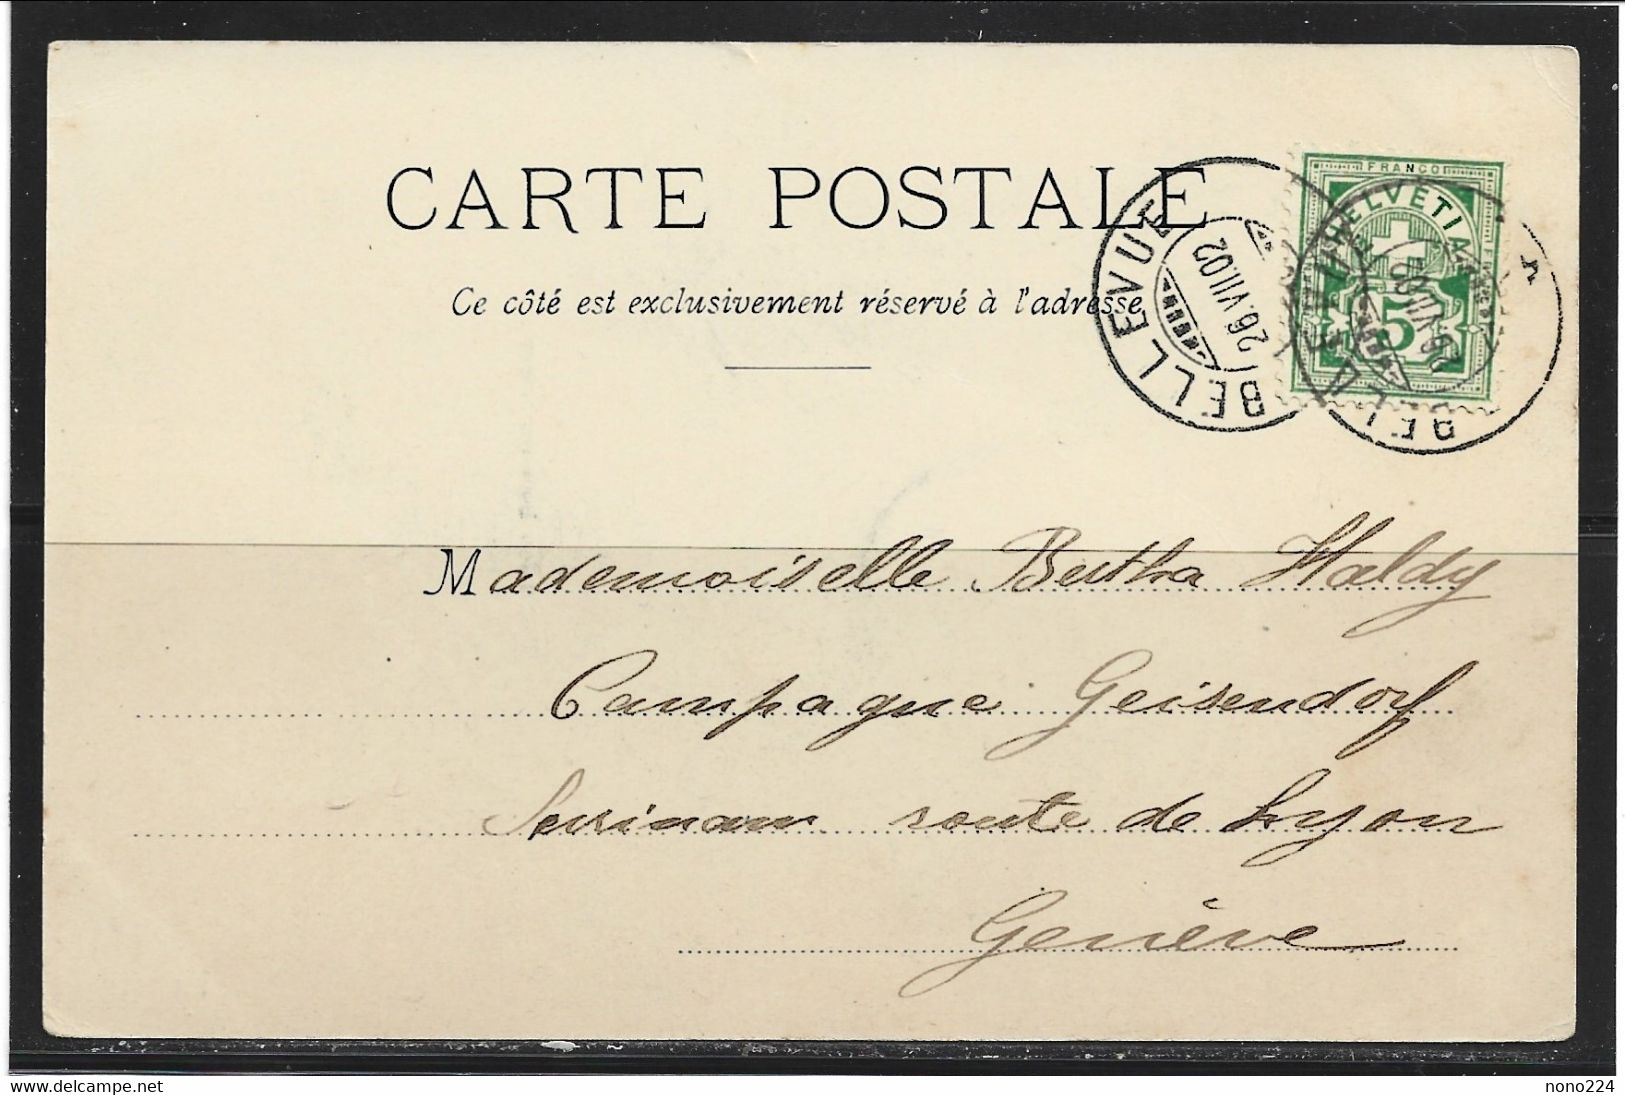 CARTE POSTALE
FRANCO
HELVETIA
5
BELLEVUE
26.VII.02
BELLEVUE
26.VII.02
Ce côté est exclusivement réservé à l'adresse
Mademoiselle Bertha Haldy
Campagne Geisendorf
Surinam route de Lyon
Genève
delcampe.net
nono224